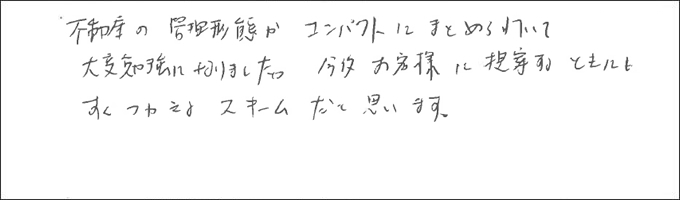 不動産の管理形態がコンパクトにまとめられていて
大変勉強になりました。今後お客様に提案するときにも
すぐつかえるスキームだと思います。